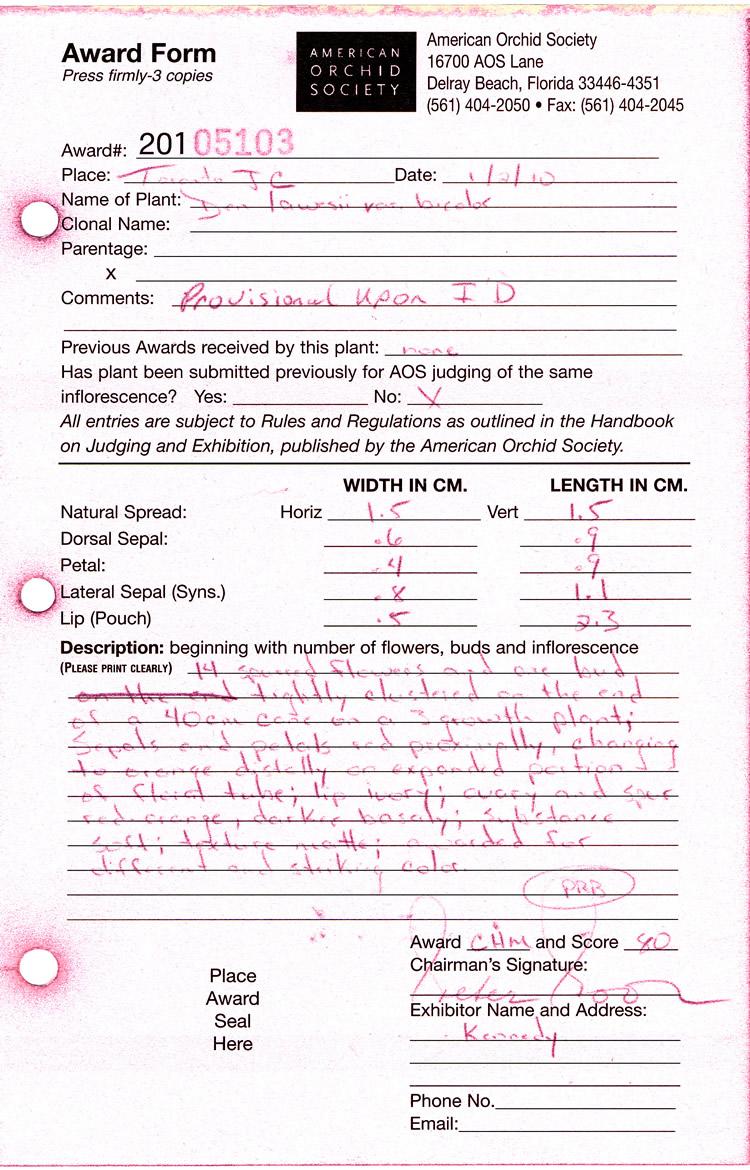 Award Form
Press firmly-3 copies
AMERICAN
ORCHID
SOCIETY
American Orchid Society
16700 AOS Lane
Delray Beach, Florida 33446-4351
(561) 404-2050 • Fax: (561) 404-2045
Award#: 20105103
Place: Toronto JC Date: 1/2/10
Name of Plant: Den lawesii var. bicolor
Clonal Name:
Parentage:
x
Comments: Provisional Upon ID
Previous Awards received by this plant: none
Has plant been submitted previously for AOS judging of the same
inflorescence? Yes: No: X
All entries are subject to Rules and Regulations as outlined in the Handbook
on Judging and Exhibition, published by the American Orchid Society.
WIDTH IN CM. LENGTH IN CM.
Natural Spread: Horiz 1.5 Vert 1.5
Dorsal Sepal: .6 .9
Petal: .4 .9
Lateral Sepal (Syns.) .8 1.1
Lip (Pouch) .5 2.3
Description: beginning with number of flowers, buds and inflorescence
(PLEASE PRINT CLEARLY) 14 spurred flowers and one bud
on the end tightly clustered on the end
of a 40cm cane on a 3 growth plant;
sepals and petals red proximally, changing
to orange distally on expanded portion
of floral tube; lip ivory; ovary and spur
red-orange, darker basaly; substance
soft; texture matte; awarded for
different and striking color.
PRB
Award CHM and Score 80
Chairman's Signature:
Place
Award
Seal
Here
Peter
Exhibitor Name and Address:
Kennedy
Phone No.
Email: